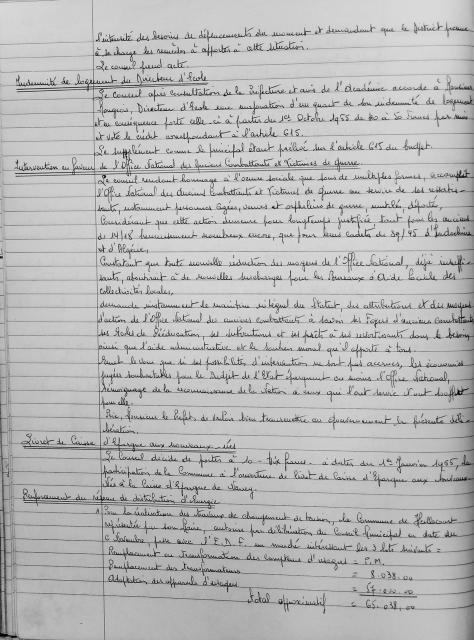 l'intensité des besoins de déplacements du moment et demandant que le District prenne
à sa charge les remèdes à apporter à cette situation.
Le conseil prend acte.
Indemnité de logement du Directeur d'École
Le Conseil après consultation de la Préfecture et avis de l'Académie accorde à Monsieur
Directeur d'École une majoration d'un quart de son indemnité de logement
en conséquence porte celle-ci à partir du 1er Octobre 1955 de 40 à 50 Francs par mois
et vote le crédit correspondant à l'article 615.
Le supplément comme le principal étant prélevé sur l'article 615 du budget.
Intervention en faveur de l'Office National des Anciens Combattants et Victimes de guerre.
Le conseil rendant hommage à l'œuvre sociale que sous de multiples formes, accomplit
l'Office National des Anciens Combattants et Victimes de Guerre au service de ses ressortis-
sants, notamment personnes âgées, veuves et orphelins de guerre, mutilés, déportés,
Considérant que cette action demeure pour longtemps justifiée tant pour les anciens
de 14/18 heureusement nombreux encore, que pour leurs cadets de 39/45 d'Indochine
et d'Algérie,
Constatant que toute nouvelle réduction des moyens de l'Office National, déjà insuffi-
sants, aboutirait à de nouvelles surcharges pour les Bureaux d'Aide Sociale des
collectivités locales,
demande instamment le maintien intégral du Statut, des attributions et des moyens
d'action de l'Office National des anciens combattants à savoir ses Foyers d'anciens combattants
ses Écoles de Rééducation, ses subventions et ses prêts à ses ressortissants dans le besoin
ainsi que l'aide administrative et le soutien moral qu'il apporte à tous.
Émet le vœu que si ses possibilités d'intervention ne sont pas accrues, les économies
jugées souhaitables pour le Budget de l'État épargnent au moins l'Office National,
témoignage de la reconnaissance de la Nation à ceux qui l'ont servie et ont souffert
pour elle.
Prie, Monsieur le Préfet, de vouloir bien transmettre au gouvernement la présente déli-
bération.
Livret de Caisse d'Épargne aux nouveaux-nés
Le Conseil décide de porter à 10 - dix francs - à dater du 1er Janvier 1955, la
participation de la Commune à l'ouverture de livret de Caisse d'Épargne aux nouveaux-
nés à la Caisse d'Épargne de Nancy.
Renforcement du réseau de distribution d'énergie
Pour la réalisation des travaux de changement de tension, la Commune de
représentée par son Maire, autorisé par délibération du Conseil Municipal en date du
Novembre, passe avec l'E.D.F. un marché intéressant les 3 lots suivants =
Remplacement ou transformation des compteurs d'usagers = P.M.
Remplacement des transformateurs = 8.038.00
Adaptation des appareils d'usagers = 57.000.00
Total approximatif = 65.038,00